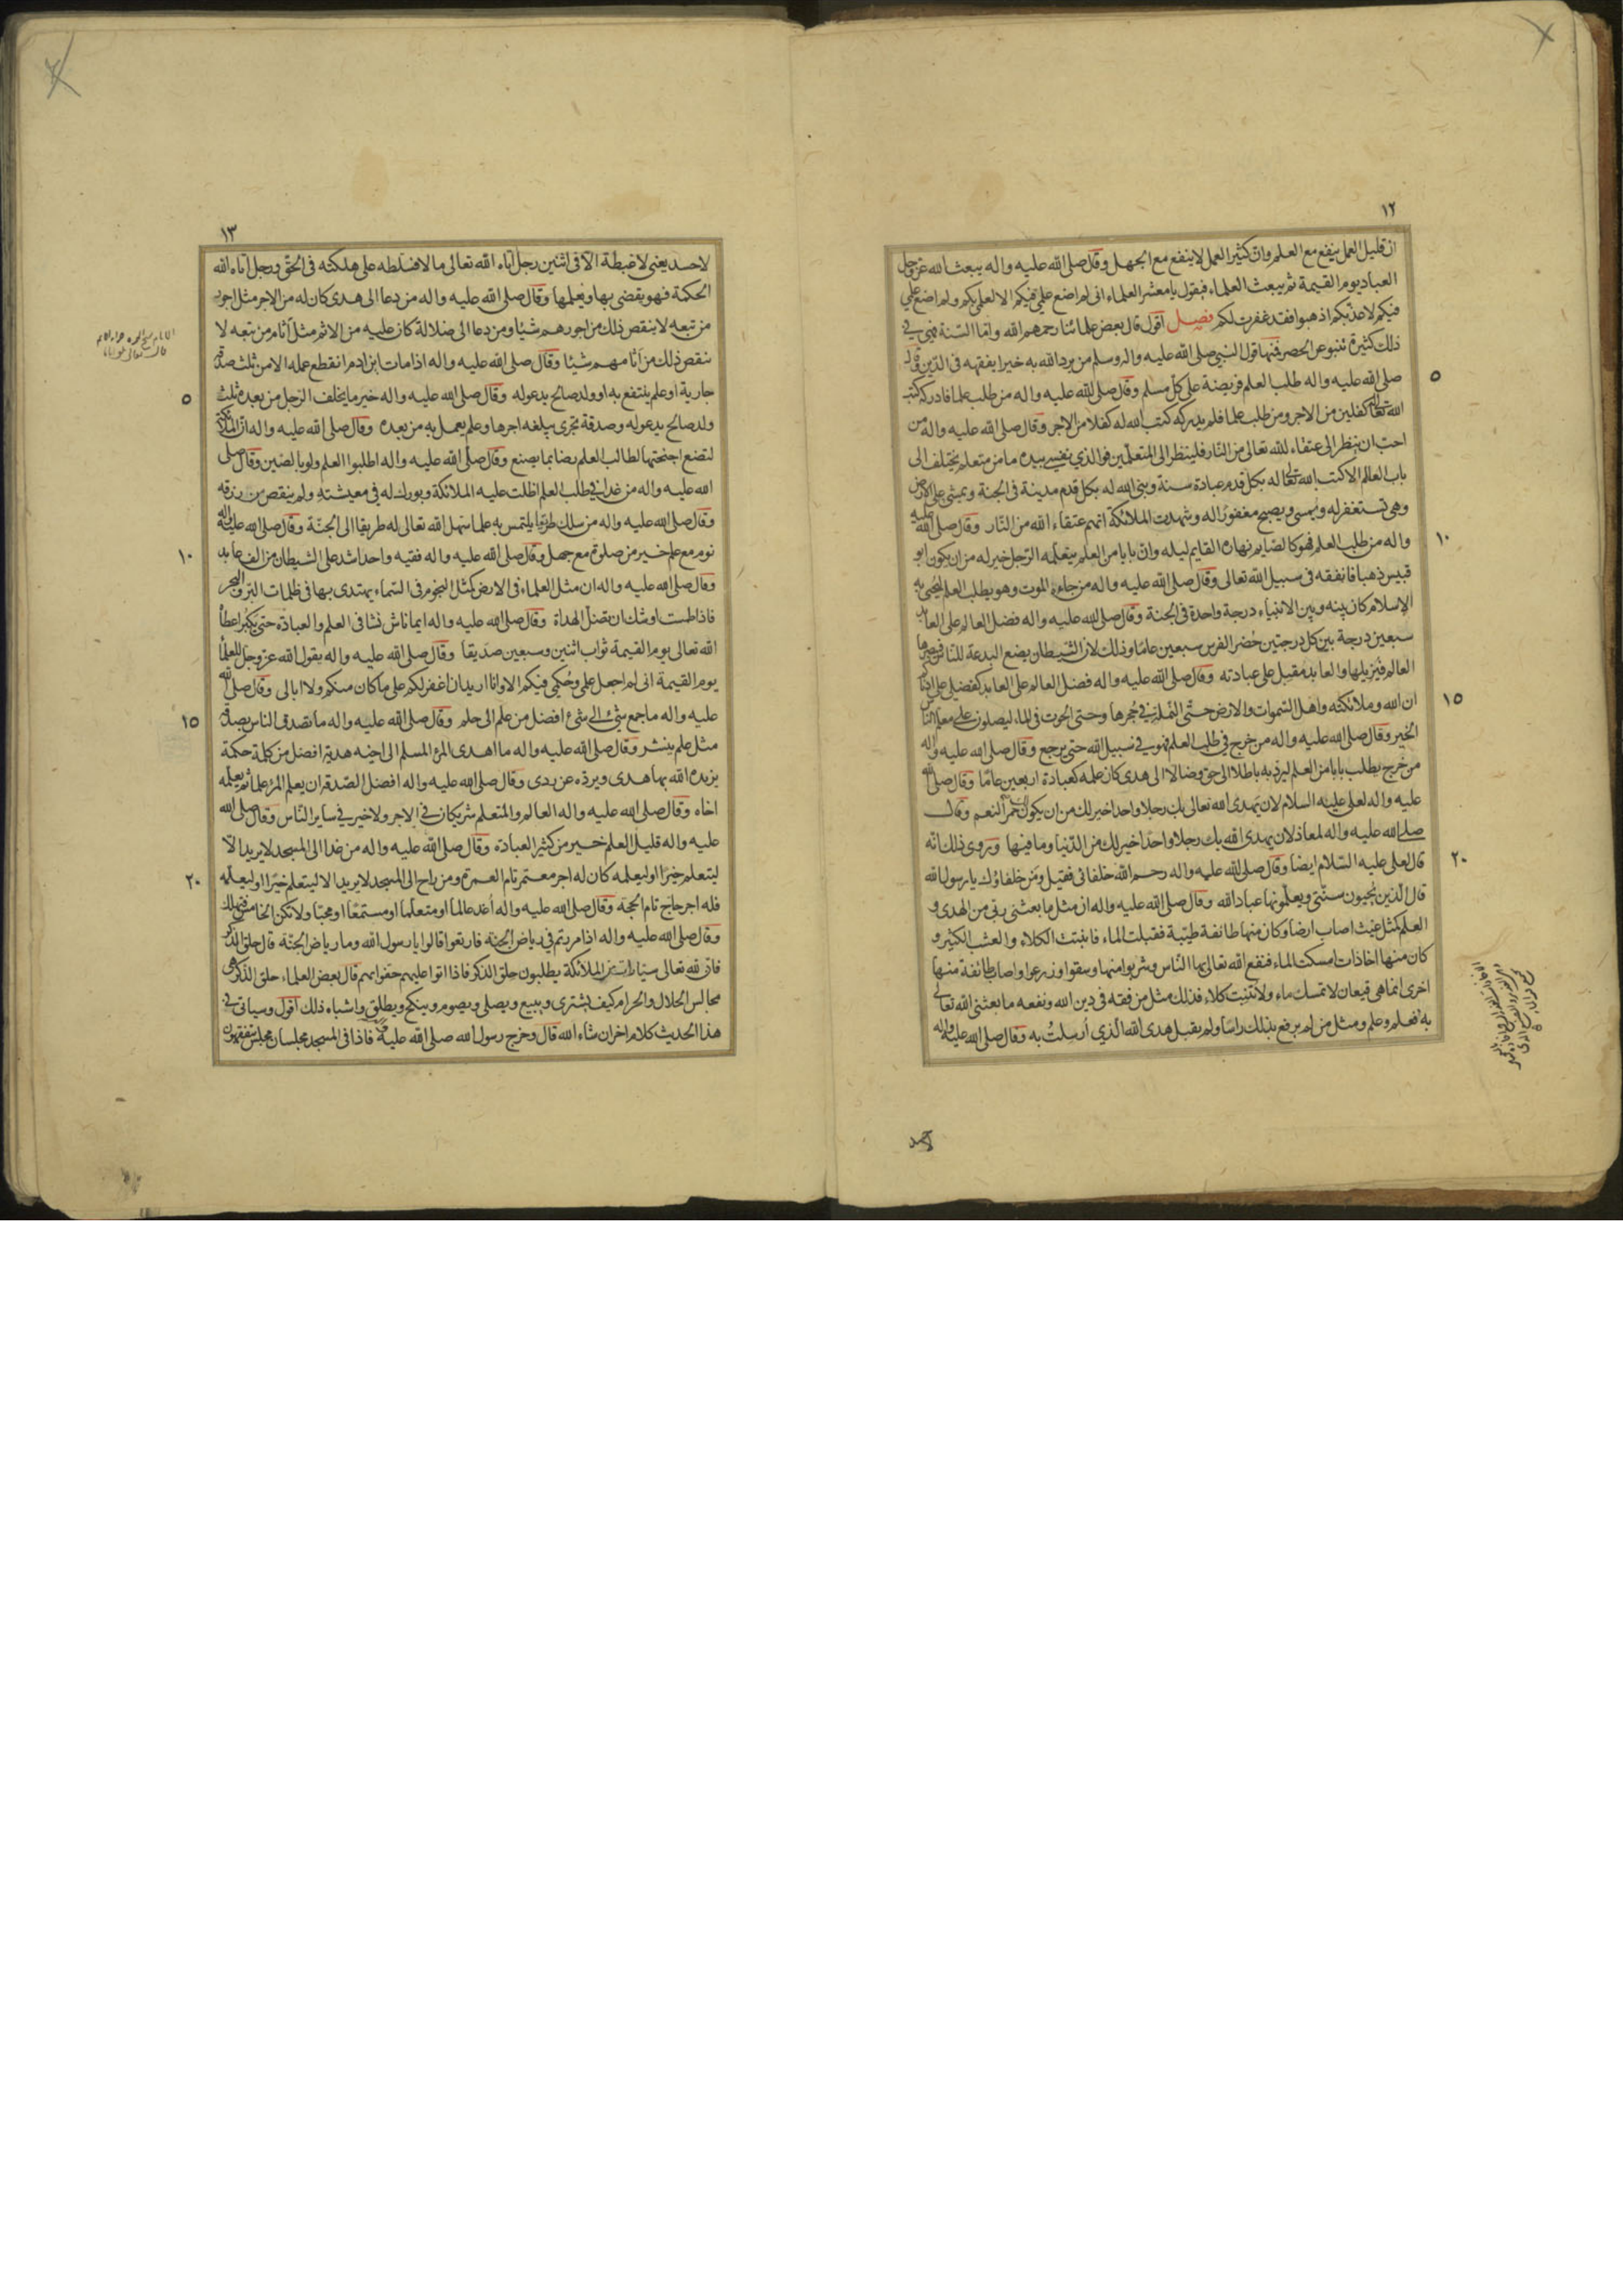 ١٢
ان قليل العمل ينفع مع العلم وان كثير العمل لاينفع مع الجهل وقال صلى الله عليه واله يبعث الله عز وجل
العباد يوم القيمة ثم يبعث العلماء فيقول يا معشر العلماء انى لم اضع علمي فيكم الا لعلمي بكم ولم اضع علمي
فيكم لاعذبكم اذهبوا فقد غفرت لكم فصل اقول قال بعض علمائنا رحمهم الله واما السنة فهي في
ذلك كثيرة تنبو عن الحصر فمنها قول النبي صلى الله عليه واله وسلم من يرد الله به خيرا يفقهه فى الدين وقوله
صلى الله عليه واله طلب العلم فريضة على كل مسلم وقال صلى الله عليه واله من طلب علما فادركه كتب
٥
الله تعالى له كفلين من الاجر ومن طلب علما فلم يدركه كتب الله له كفلا من الاجر وقال صلى الله عليه واله من
احب ان ينظر الى عتقاء لله تعالى من النار فلينظر الى المتعلمين فوالذي نفسي بيده ما من متعلم يختلف الى
باب العالم الا كتب الله تعالى له بكل قدم عبادة سنة وبنى الله له بكل قدم مدينة فى الجنة ويمشى على الارض
وهى تستغفر له ويمسى ويصبح مغفورا له وشهدت الملائكة انهم عتقاء الله من النار وقال صلى الله عليه
واله من طلب العلم فهو كالصايم نهاره القايم ليله وان بابا من العلم يتعلمه الرجل خير له من ان يكون ابو
١٠
قبيس ذهبا فانفقه فى سبيل الله تعالى وقال صلى الله عليه واله من جاءه الموت وهو يطلب العلم ليحيى به
الاسلام كان بينه وبين الانبياء درجة واحدة فى الجنة وقال صلى الله عليه واله فضل العالم على العابد
سبعين درجة بين كل درجتين حضر الفرس سبعين عاما وذلك لان الشيطان يضع البدعة للناس فيبصرها
العالم فيزيلها والعابد مقبل على عبادته وقال صلى الله عليه واله فضل العالم على العابد كفضلى على ادناكم
ان الله وملائكته واهل السموات والارض حتى النملة في جحرها وحتى الحوت فى الماء ليصلون على معلم الناس
١٥
الخير وقال صلى الله عليه واله من خرج في طلب العلم فهو في سبيل الله حتى يرجع وقال صلى الله عليه واله
من خرج يطلب بابا من العلم ليرد به باطلا الى حق وضالا الى هدى كان عمله كعبادة اربعين عاما وقال صلى الله
عليه واله لعلى عليه السلام لان يهدى الله تعالى بك رجلا واحدا خير لك من ان يكون لك حمر النعم وقال
صلى الله عليه واله لمعاذ لان يهدى الله بك رجلا واحدا خير لك من الدنيا وما فيها وروى ذلك انه
قال لعلى عليه السلام ايضا وقال صلى الله عليه واله رحم الله خلفائى فقيل ومن خلفاؤك يا رسول الله
٢٠
قال الذين يحيون سنتى ويعلمونها عباد الله وقال صلى الله عليه واله ان مثل ما بعثنى ربى من الهدى و
العلم كمثل غيث اصاب ارضا وكان منها طائفة طيبة فقبلت الماء فانبتت الكلاء والعشب الكثير و
كان منها اخاذات امسكت الماء فنفع الله تعالى بها الناس وشربوا منها وسقوا وزرعوا واصاب طائفة منها
اخرى انما هى قيعان لاتمسك ماء ولا تنبت كلاء فذلك مثل من فقه فى دين الله ونفعه ما بعثنى الله تعالى
به فعلم وعلم ومثل من لم يرفع بذلك راسا ولم يقبل هدى الله الذي ارسلت به وقال صلى الله عليه واله
١٣
لاحسد يعنى لاغبطة الا فى اثنين رجل اتاه الله تعالى مالا فسلطه على هلكته فى الحق ورجل اتاه الله
الحكمة فهو يقضى بها ويعلمها وقال صلى الله عليه واله من دعا الى هدى كان له من الاجر مثل اجور
من تبعه لاينقص ذلك من اجورهم شيئا ومن دعا الى ضلالة كان عليه من الاثم مثل اثام من تبعه لا
ينقص ذلك من اثامهم شيئا وقال صلى الله عليه واله اذا مات ابن ادم انقطع عمله الا من ثلث صدقة
جارية او علم ينتفع به او ولد صالح يدعو له وقال صلى الله عليه واله خير ما يخلف الرجل من بعده ثلث
٥
ولد صالح يدعو له وصدقة تجرى يبلغه اجرها وعلم يعمل به من بعده وقال صلى الله عليه واله ان الملائكة
لتضع اجنحتها لطالب العلم رضا بما يصنع وقال صلى الله عليه واله اطلبوا العلم ولو بالصين وقال صلى
الله عليه واله من غدا في طلب العلم اظلت عليه الملائكة وبورك له في معيشته ولم ينقص من رزقه
وقال صلى الله عليه واله من سلك طريقا يلتمس به علما سهل الله تعالى له طريقا الى الجنة وقال صلى الله عليه واله
نوم مع علم خير من صلوة مع جهل وقال صلى الله عليه واله فقيه واحد اشد على الشيطان من الف عابد
١٠
وقال صلى الله عليه واله ان مثل العلماء فى الارض كمثل النجوم فى السماء يهتدى بها فى ظلمات البر والبحر
فاذا طمست اوشك ان تضل الهداة وقال صلى الله عليه واله ايما ناش نشا فى العلم والعبادة حتى يكبر اعطاه
الله تعالى يوم القيمة ثواب اثنين وسبعين صديقا وقال صلى الله عليه واله يقول الله عز وجل للعلماء
يوم القيمة انى لم اجعل علمي وحكمي فيكم الا وانا اريد ان اغفر لكم على ما كان منكم ولا ابالى وقال صلى الله
عليه واله ما جمع شئ الى شئ افضل من علم الى حلم وقال صلى الله عليه واله ما تصدق الناس بصدقة
١٥
مثل علم ينشر وقال صلى الله عليه واله ما اهدى المرء المسلم الى اخيه هدية افضل من كلمة حكمة
يزيده الله بها هدى ويرده عن ردى وقال صلى الله عليه واله افضل الصدقة ان يعلم المرء علما ثم يعلمه
اخاه وقال صلى الله عليه واله العالم والمتعلم شريكان في الاجر ولاخير في ساير الناس وقال صلى الله
عليه واله قليل العلم خير من كثير العبادة وقال صلى الله عليه واله من غدا الى المسجد لايريد الا
ليتعلم خيرا او ليعلمه كان له اجر معتمر تام العمرة ومن راح الى المسجد لايريد الا ليتعلم خيرا او ليعلمه
٢٠
فله اجر حاج تام الحجة وقال صلى الله عليه واله اغد عالما او متعلما او مستمعا او محبا ولا تكن الخامس فتهلك
وقال صلى الله عليه واله اذا مررتم في رياض الجنة فارتعوا قالوا يا رسول الله وما رياض الجنة قال حلق الذكر
فان لله تعالى سيارات من الملائكة يطلبون حلق الذكر فاذا اتوا عليهم حفوا بهم قال بعض العلماء حلق الذكر هى
مجالس الحلال والحرام كيف يشترى ويبيع ويصلى ويصوم وينكح ويطلق واشباه ذلك اقول وسياتى في
هذا الحديث كلام اخر ان شاء الله قال وخرج رسول الله صلى الله عليه فاذا فى المسجد مجلسان مجلس يتفقهون